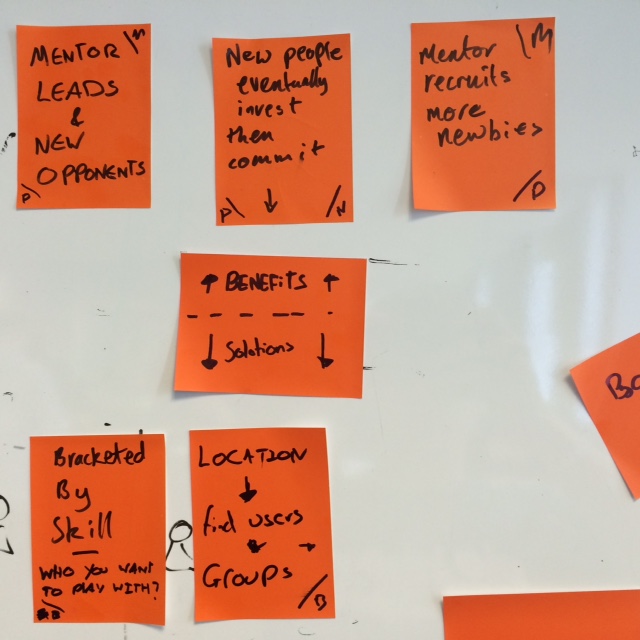 MENTOR \M
LEADS
&
NEW
OPPONENTS
P\
New people
eventually
invest
then
commit
P\ ↓ /N
Mentor \M
recruits
more
newbies
/P
↑ BENEFITS ↑
↓ Solutions ↓
Bracketed
By
Skill
WHO YOU WANT
TO PLAY WITH?
LOCATION
↓
find users
Groups
/B